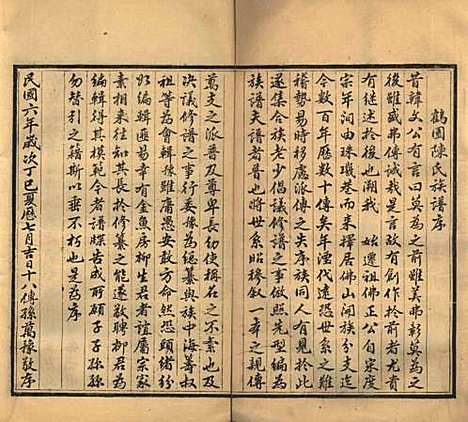 鶴園陳氏族譜序
昔韓文公有言曰莫為之前雖美弗彰莫為之
後雖盛弗傳誠哉是言故有創作於前者尤貴
有繼述於後也溯我　始遷祖佛正公自宋度
宗年間由珠璣巷而來擇居佛山開族分支迄
今數百年歷數十傳矣年湮代遠恐世系之難
稽昭穆派源之失序族內同人有見於此
遂集合族老少倡議修譜之事倣照先型編為
族譜夫譜者所以明世系昭穆敘一本之親傳
萬支之派普及尊卑長幼者也於是族中海籌叔
決議修譜之舉

祖等為會輯隊雖屬愚安畢然恐頭緒紛
紜編輯匪易幸有金魚房柳生君者誼屬宗家
素相契洽且其長於修纂之能敦聘柳君為
編輯得其模範令者譜牒告成所願子子孫孫
勿替引之籍斯以垂不朽焉是為序
民國六年歲次丁巳夏曆七月吉日十八傳孫萬豫敬序